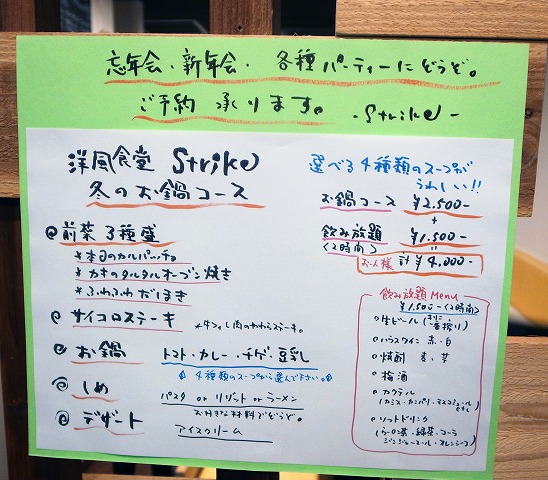 忘年会・新年会・各種パーティーにどうぞ。
ご予約承ります。 -Strike-
洋風食堂 Strike
冬のお鍋コース
選べる4種類のスープが
うれしい!!
お鍋コース ¥2,500-
+
飲み放題 ¥1,500-
<2時間> =
お一人様 計¥4,000-
@前菜3種盛
*本日のカルパッチョ
*カキのタルタルオーブン焼き
*ふわふわだし巻き
@サイコロステーキ *牛フィレ肉のやわらかステーキ。
@お鍋 トマト・カレー・チゲ・豆乳
4種類のスープから選んで下さい。
@しめ パスタ or リゾット or ラーメン
お好きな材料でどうぞ。
@デザート アイスクリーム
飲み放題 Menu
¥1,500-<2時間>
生ビール(キリン一番搾り)
ハウスワイン 赤・白
焼酎 麦・芋
梅酒
カクテル
(カシス・カンパリ・モスコミュール
ソフトドリンク
(ウーロン茶・緑茶・コーラ
ジンジャーエール・オレンジ)